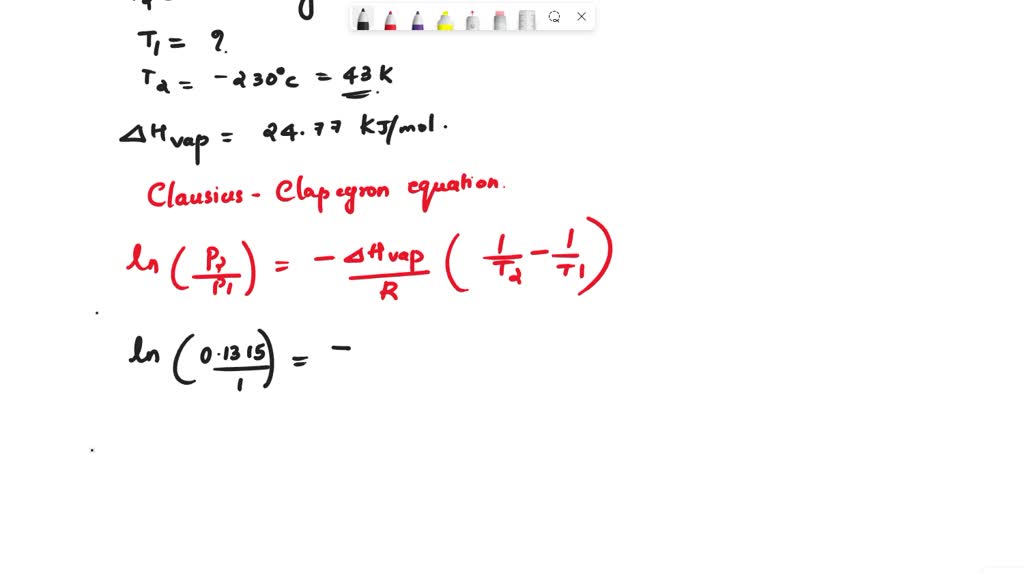 T1 = ?
T2 = -230°C = 43 K.
ΔHvap = 24.77 KJ/mol.
Clausius - Clapegron equation.
ln (P2/P1) = - ΔHvap/R (1/T2 - 1/T1)
ln (0.1315/1) = -